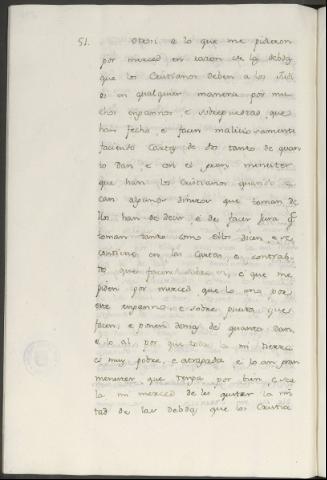 51. Otrosi a lo que me pidieron
por merced en razon de las debdas
que los Cristianos deben a los Judi
os en qualquier manera por mu
chos engannos, e sobrepuestas que
han fecho, e facen maliciosamente
faciendo Cartas de dos tanto de quan
to dan, e con el gran menester
que han los Cristianos quando
can algunos dineros que toman de
llos han de decir, e de facer jura q.e
toman tanto como ellos dicen, e se
contiene en las Cartas, e contrab
tos que facen sobre ello, e que me
piden por merced que lo uno por
este enganno, e sobre puesta que
facen, e ponen demas de quanto dan,
e lo al, por que toda la mi tierra
es muy pobre, e astragada e lo an gran
menester que tenga por bien, e sea
la mi merced de les quitar la mi
tad de las debdas que los Cristia